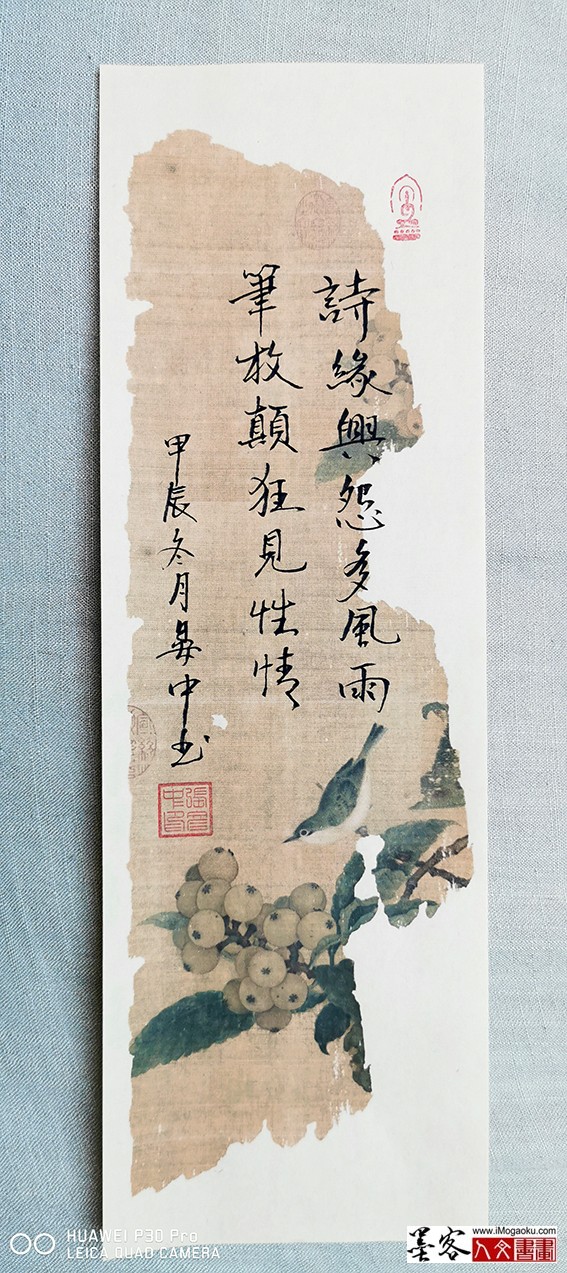 詩緣興怨多風雨
筆放顛狂見性情
甲辰冬月寅中书
張寅中印
HUAWEI P30 Pro
LEICA QUAD CAMERA
墨客
www.iMogaoku.com
人文書畫